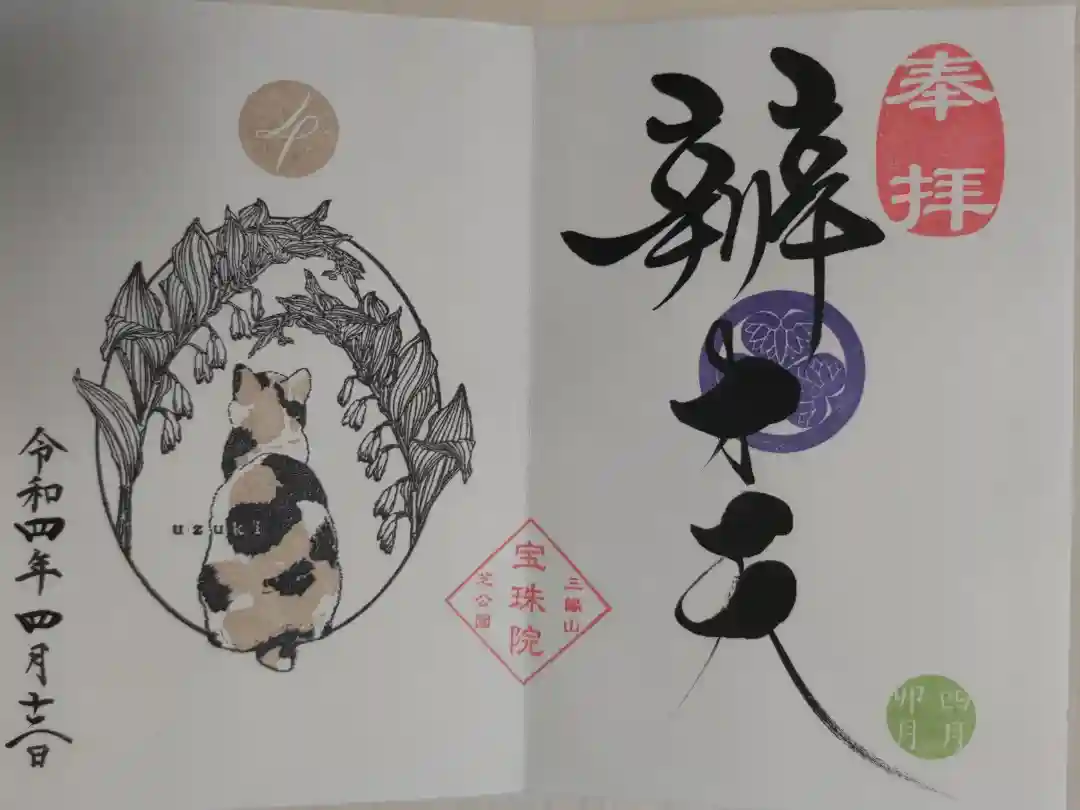 奉拝
辨才天
四月
卯月
三縁山
宝珠院
芝公園
uzuki
令和四年四月十六日